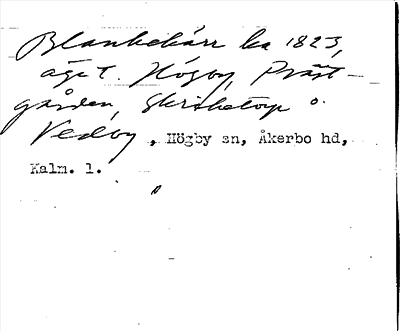 Blankekärr ha 1823,
äget. Högby, Präst-
gården, Skriketorp o.
Vedby, Högby sn, Åkerbo hd,
Kalm. l.